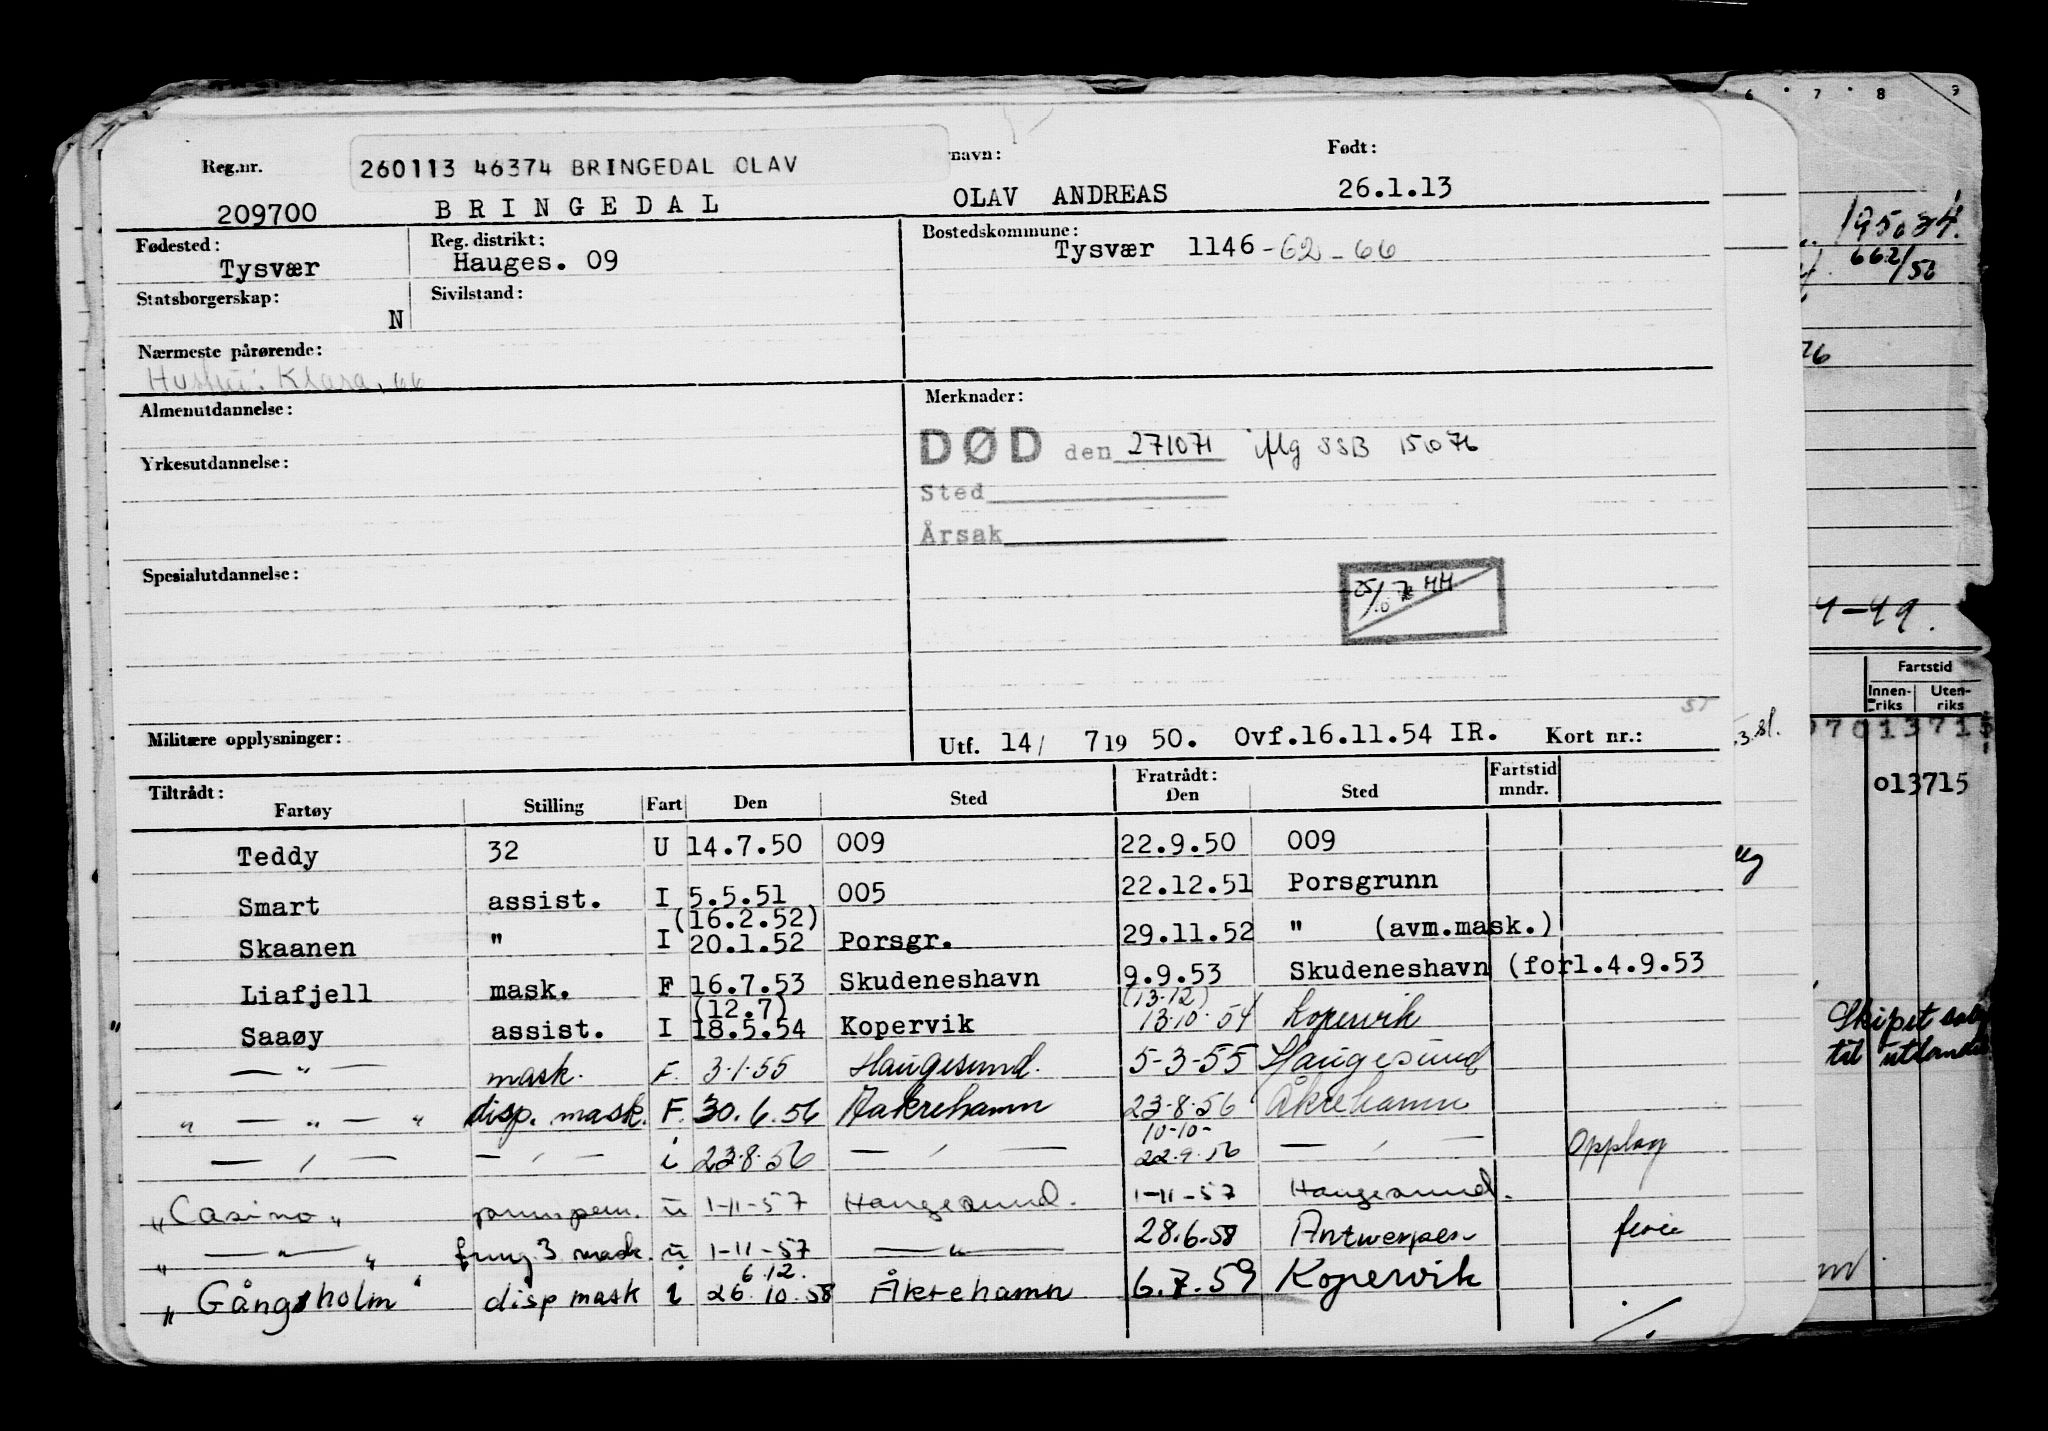 6 7 8 9
Reg.nr. 260113 46374 BRINGEDAL OLAV navn: Født:
209700 BRINGEDAL OLAV ANDREAS 26.1.13
Fødested: Reg. distrikt: Bostedskommune:
Tysvær Hauges. 09 Tysvær 1146-62-66
Statsborgerskap: Sivilstand:
N
Nærmeste pårørende:
Hustru: Klara, 66
Almenutdannelse: Merknader:
DØD den 271071 iflg SSB 151076
Yrkesutdannelse:
Sted
Årsak
Spesialutdannelse:
HH
Militære opplysninger: Utf. 14/ 719 50. Ovf.16.11.54 IR. Kort nr.:
Tiltrådt: Fratrådt: Fartstid
Fartøy Stilling Fart Den Sted Den Sted mndr.
Teddy 32 U 14.7.50 009 22.9.50 009
Smart assist. I 5.5.51 005 22.12.51 Porsgrunn
(16.2.52)
Skaanen " I 20.1.52 Porsgr. 29.11.52 " (avm.mask.)
Liafjell mask. F 16.7.53 Skudeneshavn 9.9.53 Skudeneshavn (forl.4.9.53
(12.7) (13.12)
" Saaøy assist. I 18.5.54 Kopervik 13.10.54 Kopervik
— " — mask. F. 3.1.55 Haugesund. 5-3-55 Haugesund
" — " — " disp. mask. F. 30.6.56 Aakrehamn 23.8.56 Åkrehamn
10-10-
— ' — — ' — i 23.8.56 — ' — 22.9.56 — ' — Opplag
"Casino" pumpem. u 1-11-57 Haugesund. 1-11-57 Haugesund.
" — " — " fung. 3 mask. u 1-11-57 — " — 28.6.58 Antwerpen ferie
6.12.
"Gångsholm" disp mask i 26.10.58 Åkrehamn 6.7.59 Kopervik
./.
195034.
662/50
26
4-49.
Fartstid
Innen-riks Uten-riks
013715
013715
Skipet solg
til utlandet